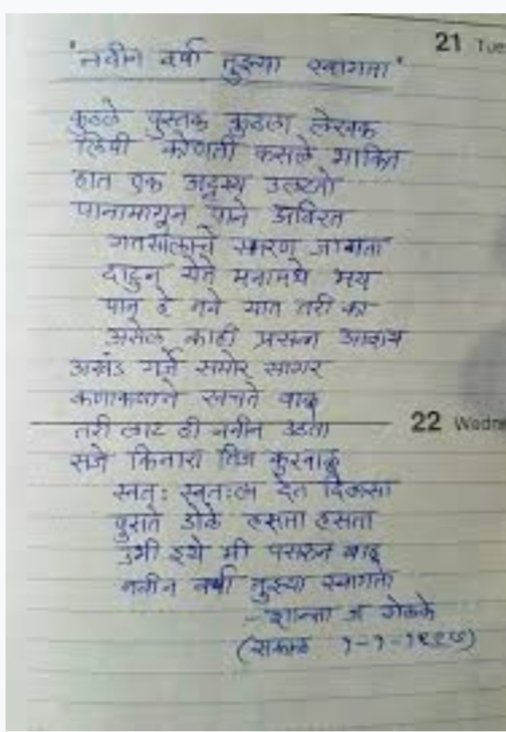 21 Tue
'नवीन वर्षा तुझ्या स्वागता'
कुठले पुस्तक कुठला लेखक
लिपी कोणती कसले भाकित
हात एक अदृश्य उलटतो
पानामागून पाने अविरत
गतसालाचे स्मरण जागता
दाटुन येते मनामधे भय
पान हे नवे यात तरी का
असेल काही प्रसन्न आशय
अखंड गर्जे समोर सागर
कणाकणाने खचते वाळू
तरी लाट ही नवीन उठता
22 Wedn
सजे किनारा तिज कुरवाळू
स्वत: स्वत:ला देत दिलासा
पुसते डोळे हसता हसता
उभी इथे मी पसरुन बाहू
नवीन वर्षा तुझ्या स्वागता
- शान्ता ज शेळके
(सकाळ १-१-१९९७)